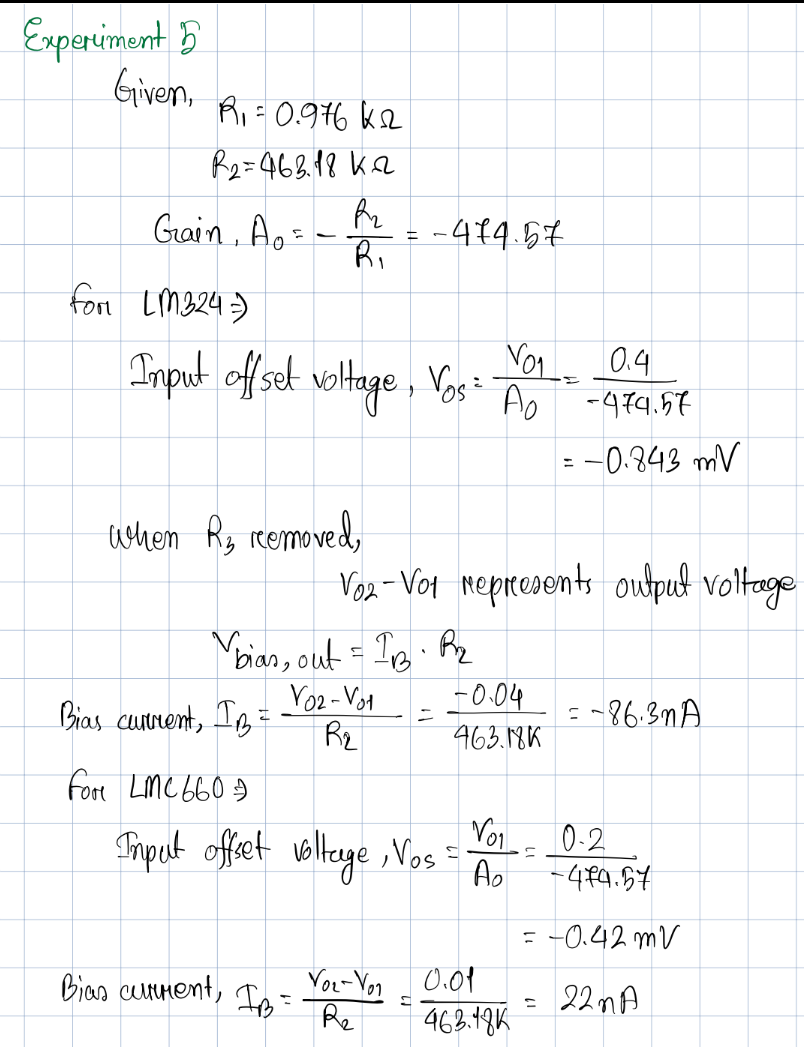 Experiment 5
Given,
R₁ = 0.976 kΩ
R₂ = 463.18 kΩ
Gain, A₀ = - R₂/R₁ = -474.57
for LM324 ⇒
Input offset voltage, V_OS = V_O1/A_O = 0.4/-474.57
= -0.843 mV
when R₃ removed,
V_O2 - V_O1 represents output voltage
V_bias, out = I_B . R₂
Bias current, I_B = (V_O2 - V_O1)/R₂ = -0.04/463.18K = -86.3nA
for LMC660 ⇒
Input offset voltage, V_OS = V_O1/A_O = 0.2/-474.57
= -0.42 mV
Bias current, I_B = (V_O2 - V_O1)/R₂ = 0.01/463.18K = 22nA